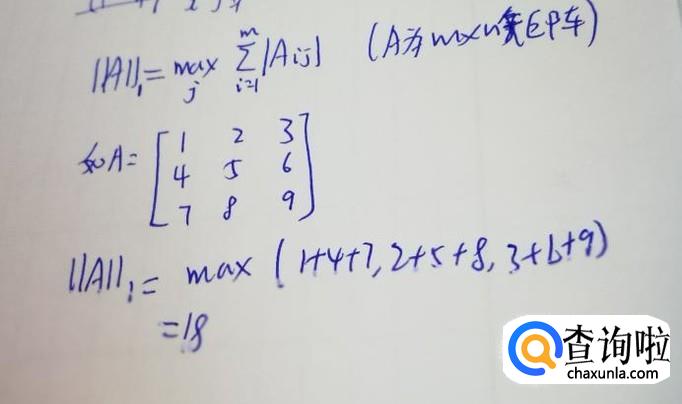 ||A||₁ = max_j Σ_{i=1}^{m} |Aij| (A为m×n矩阵)
如A= [ 1 2 3
4 5 6
7 8 9 ]
||A||₁ = max (1+4+7, 2+5+8, 3+6+9)
=18
查询啦
chaxunla.com